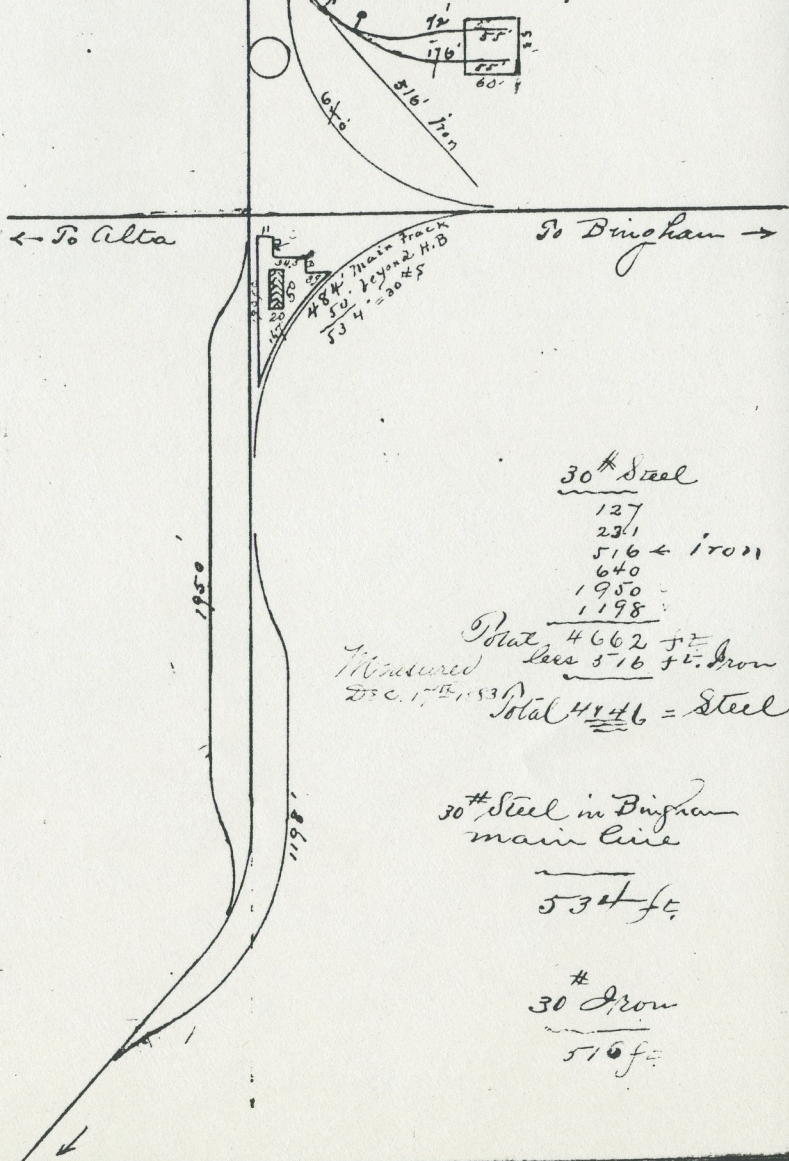 72'
55'
176'
55'
60'
516' Iron
640'
← To Alta
To Bingham →
484' Main Track
50' beyond H.B
534' = 30# S
50
20
1950'
1198'
30# Steel
127
231
516 ← iron
640
1950
1198
Total 4662 ft
less 516 ft. Iron
Measured
Dec. 17th, 1883
Total 4146 = Steel
30# Steel in Bingham
main line
534 ft.
30# Iron
516 ft